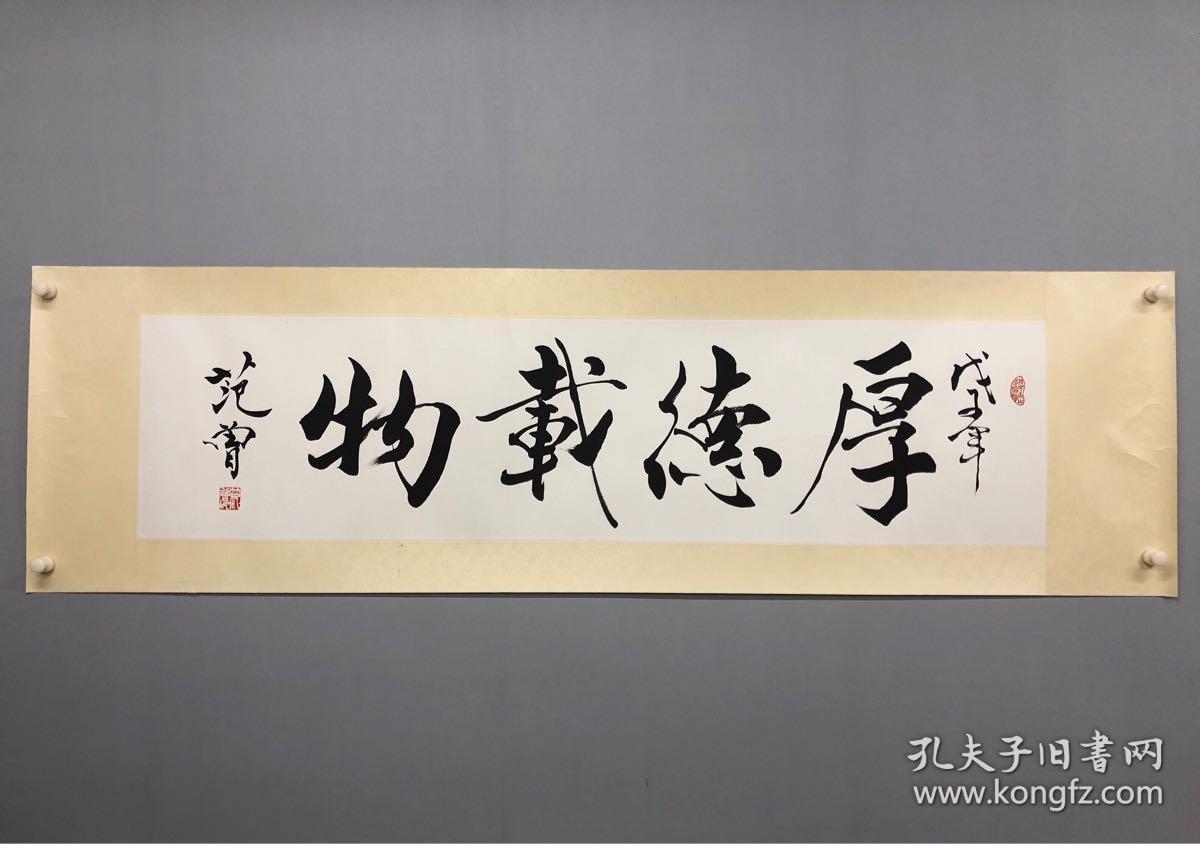 戊子年
厚德載物
范曾
孔夫子旧書网
www.kongfz.com